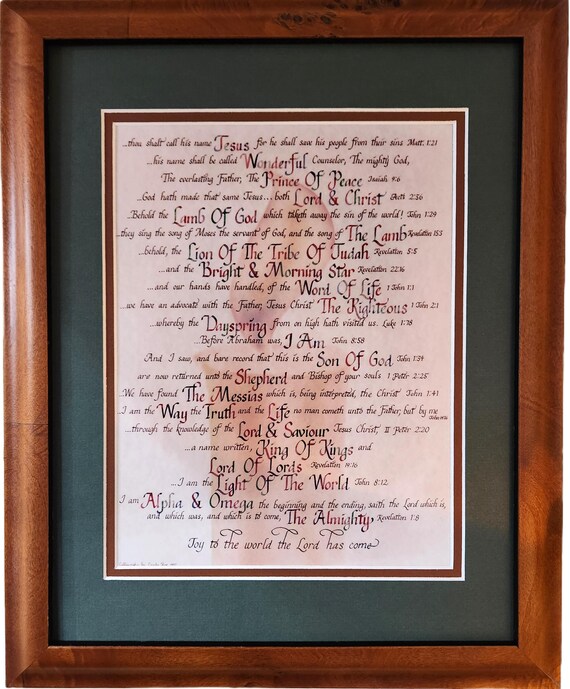 ...thou shalt call his name Jesus for he shall save his people from their sins Matt. 1:21
...his name shall be called Wonderful Counselor, The mighty God,
The everlasting Father, The Prince Of Peace Isaiah 9:6
...God hath made that same Jesus... both Lord & Christ Acts 2:36
...Behold the Lamb Of God which taketh away the sin of the world! John 1:29
...they sing the song of Moses the servant of God, and the song of The Lamb Revelation 15:3
...behold, the Lion Of The Tribe Of Judah Revelation 5:5
...and the Bright & Morning Star Revelation 22:16
...and our hands have handled, of the Word Of Life 1 John 1:1
...we have an advocate with the Father, Jesus Christ The Righteous 1 John 2:1
...whereby the Dayspring from on high hath visited us. Luke 1:78
...Before Abraham was, I Am John 8:58
And I saw, and bare record that this is the Son Of God John 1:34
are now returned unto the Shepherd and Bishop of your souls 1 Peter 2:25
...We have found The Messias which is, being interpreted, the Christ John 1:41
...I am the Way the Truth and the Life no man cometh unto the Father, but by me John 14:6
...through the knowledge of the Lord & Saviour Jesus Christ, II Peter 2:20
...a name written, King Of Kings and
Lord Of Lords Revelation 19:16
...I am the Light Of The World John 8:12
I am Alpha & Omega the beginning and the ending, saith the Lord which is,
and which was, and which is to come, The Almighty, Revelation 1:8
Joy to the world the Lord has come